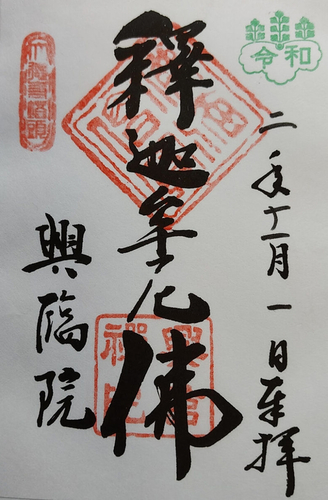 令和
二年十一月一日奉拝
釋迦牟尼佛
興臨院